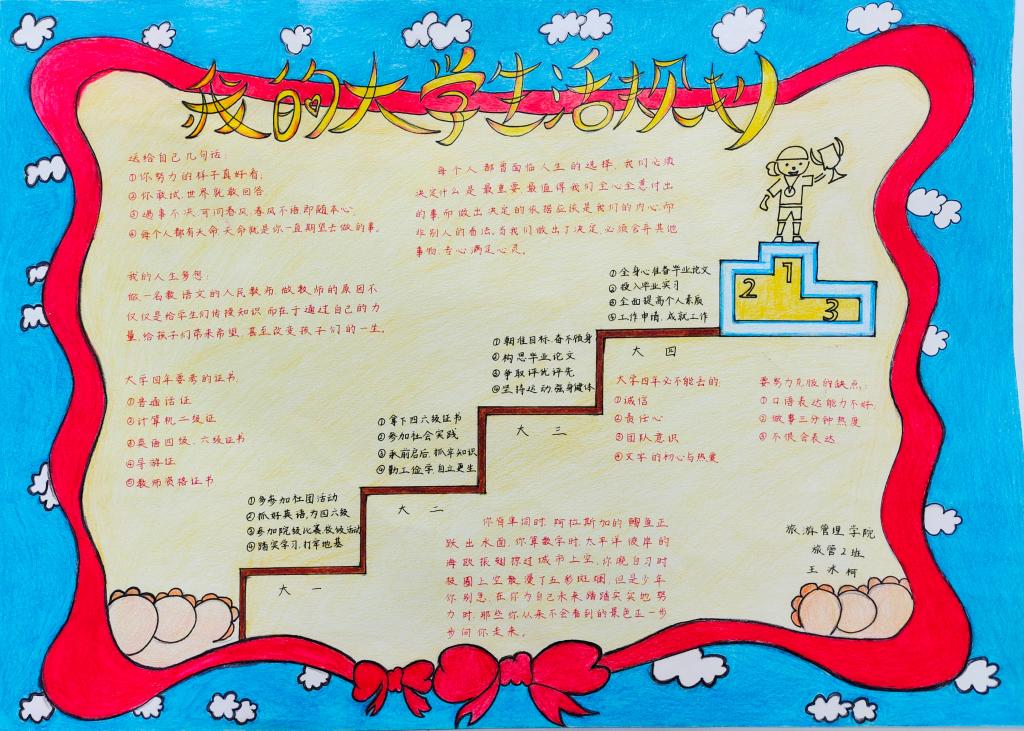 我的大学生活规划
送给自己几句话:
①你努力的样子真好看;
②你敢试,世界就敢回答。
③遇事不决,可问春风,春风不语即随本心。
④每个人都有天命,天命就是你一直期望去做的事。
每个人都曾面临人生的选择,我们必须
决定什么是最重要、最值得我们全心全意付出
的事而做出决定的依据应该是我们的内心,而
非别人的看法。当我们做出了决定,必须舍弃其他
事物,专心满足心灵。
我的人生梦想:
做一名教语文的人民教师,做教师的原因不
仅仅是给学生们传授知识,而在于通过自己的力
量,给孩子们带来希望,甚至改变孩子们的一生。
大学四年要考的证书:
①普通话证
②计算机二级证
③英语四级、六级证书
④导游证
⑤教师资格证书
①多参加社团活动
②抓好英语,为四六级
③参加院级比赛,校级活动
④踏实学习,打牢地基
大一
①拿下四六级证书
②参加社会实践
③承前启后,抓牢知识
④勤工俭学,自立更生
大二
①朝准目标,奋不顾身
②构思毕业论文
③争取评优评先
④坚持运动,强身健体
大三
①全身心准备毕业论文
②投入毕业实习
③全面提高个人素质
④工作申请,成就工作
大四
1
2
3
大学四年必不能丢的:
①诚信
②责任心
③团队意识
④文字的初心与热爱
要努力克服的缺点:
①口语表达能力不好;
②做事三分钟热度
③不很会表达
你背单词时,阿拉斯加的鳕鱼正
跃出水面,你算数学时,太平洋彼岸的
海鸥振翅掠过城市上空,你晚自习时
极圈上空散漫了五彩斑斓,但是少年
你别急,在你为自己未来踏踏实实地努
力时,那些你从来不会看到的景色正一步
步向你走来。
旅游管理学院
旅管2班
王冰柯